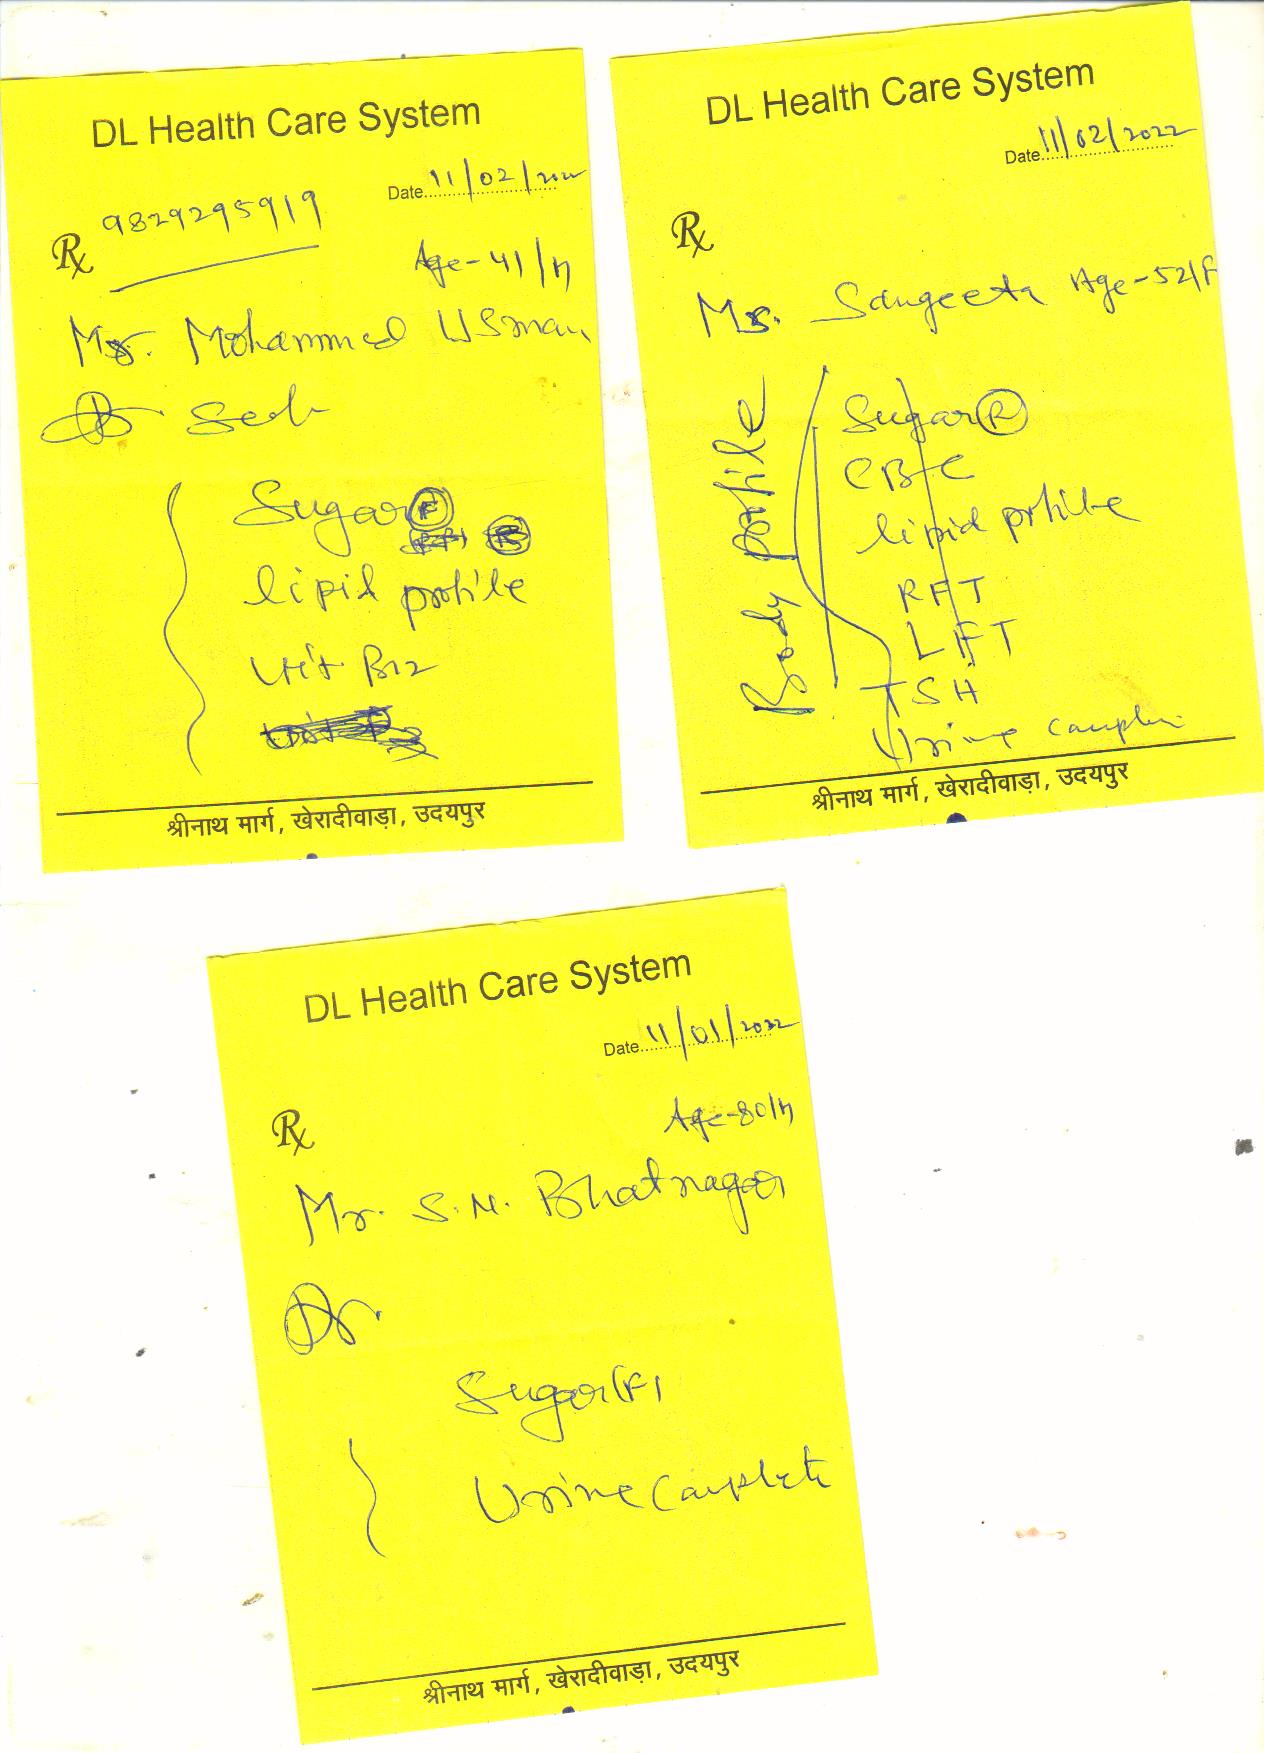 DL Health Care System
Date 11/02/2022
9829295919
Rx
Age-41/M
Mr. Mohammed Usman
Dr
Sugar (F)
lipid profile
Vit B12
श्रीनाथ मार्ग, खेरादीवाड़ा, उदयपुर
DL Health Care System
Date 11/02/2022
Rx
Ms. Sangeeta Age-52/F
Body profile
Sugar (R)
CBC
lipid profile
RFT
LFT
TSH
Urine complete
श्रीनाथ मार्ग, खेरादीवाड़ा, उदयपुर
DL Health Care System
Date 11/01/2022
Rx
Age-80/M
Mr. S.N. Bhatnagar
Dr.
Sugar (F)
Urine Complete
श्रीनाथ मार्ग, खेरादीवाड़ा, उदयपुर